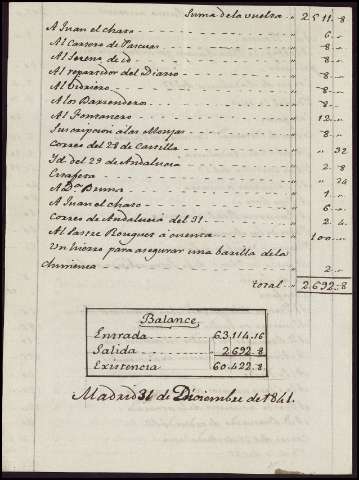 Suma de la vuelta " 2.511..8
A Juan el chaso " 6..
Al Cartero de Pascuas " 8..
Al Sereno de id. " 8..
Al repartidor del Diario " 8..
Al Vidriero " 8..
A los Barrenderos " 8..
Al Fontanero " 12..
Suscripcion a las Monjas " 8..
Correo del 28 de Castilla " " 32
Yd. del 29 de Andalucia " 2..8
" " 24
A Dª Bruna " 1..
A Juan el chaso " 6..
Correo de Andalucia del 31 " 2..4
Al Sastre Rouguet a cuenta " 100..
Un hierro para asegurar una barilla de la
chimenea " 2..
total 2.692..8
Balance
Entrada 63.114..16
Salida 2.692..8
Existencia 60.422..8
Madrid 31 de Diciembre de 1841.